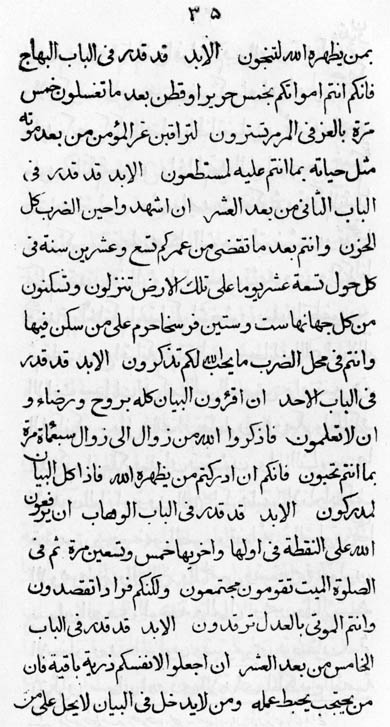 ٣٥
بمن يظهره الله لتنجون الابد قد قدر فى الباب البهاج
فانكم انتم امواتكم بخمس حرير او قطن بعد ما تغسلون خمس
مرة بالعز فى المرمر تسترون لتراقبن غر المؤمن من بعد موته
مثل حياته بما انتم عليه لمستطعون الابد قد قدر فى
الباب الثانى من بعد العشر ان اشهد واحين الضرب كل
الحزن وانتم بعد ما تقضى من عمركم تسع وعشرين سنة فى
كل حول تسعة عشر يوما على تلك الارض تنزلون وتسكنون
من كل جهاتها ست وستين فرسخا حوم على من سكن فيها
وانتم فى محل الضرب ما يحب الله لكم تذكرون الابد قد قدر
فى الباب الاحد ان اقرؤن البيان كله بروح ورضاء و
ان لا تعلمون فاذكروا الله من زوال الى زوال سبعمأة مرة
بما انتم تحبون فانكم ان ادركتم من يظهره الله فاذا كل البيان
لمدركون الابد قد قدر فى الباب الوهاب ان يرفعون
الله على النقطة فى اولها واخرها خمس وتسعين مرة ثم فى
الصلوة الميت تقومون مجتمعون ولكنكم فرادا تقصدون
وانتم الموتى بالعدل ترقدون الابد قد قدر فى الباب
الخامس من بعد العشر ان اجعلوا لانفسكم ذرية باقية فان
من يحتجب يحبط عمله ومن لا يدخل فى البيان لا يحل على من